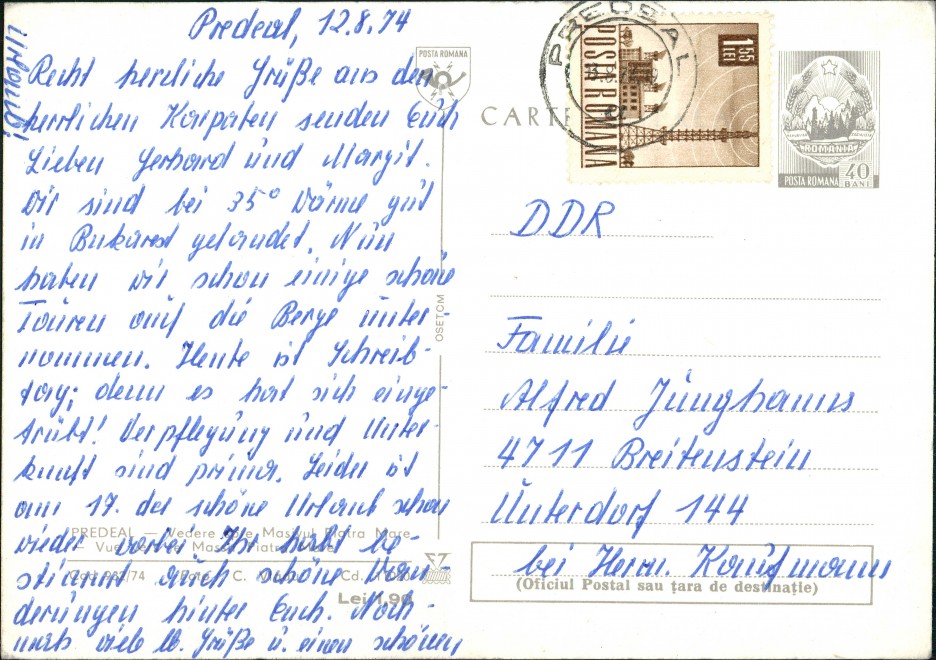 Predeal, 12.8.74
Recht herzliche Grüße aus den
herrlichen Karpaten senden Euch
Lieben Gerhard und Margit.
Wir sind bei 35° Wärme gut
in Bukarest gelandet. Nun
haben wir schon einige schöne
Touren auf die Berge unter-
nommen. Heute ist Schreib-
tag; denn es hat sich einge-
trübt! Verpflegung und Unter-
kunft sind prima. Leider ist
am 17. der schöne Urlaub schon
wieder vorbei. Ihr habt be-
stimmt auch schöne Wan-
derungen hinter Euch. Noch-
mals viele lb. Grüße u. einen schönen
Urlaub!
PREDEAL — Vedere spre Masivul Piatra Mare
— Vue vers le Massif Piatra Mare
Lei 1,90
OSETCM
POSTA ROMANA
CARTE
PREDEAL
1,55 LEI
POSTA ROMANA
ROMANIA
POSTA ROMANA
40 BANI
DDR
Familie
Alfred Junghanns
4711 Breitenstein
Unterdorf 144
bei Herrn Kaufmann
(Oficiul Postal sau țara de destinație)